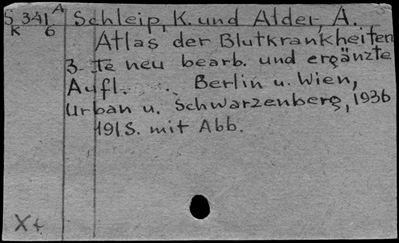 S 341 A Schleip, K. und Alder, A.
K 6 Atlas der Blutkrankheiten
3-te neu bearb. und ergänzte
Aufl. Berlin u. Wien,
Urban u. Schwarzenberg, 1936
191S. mit Abb.
X+